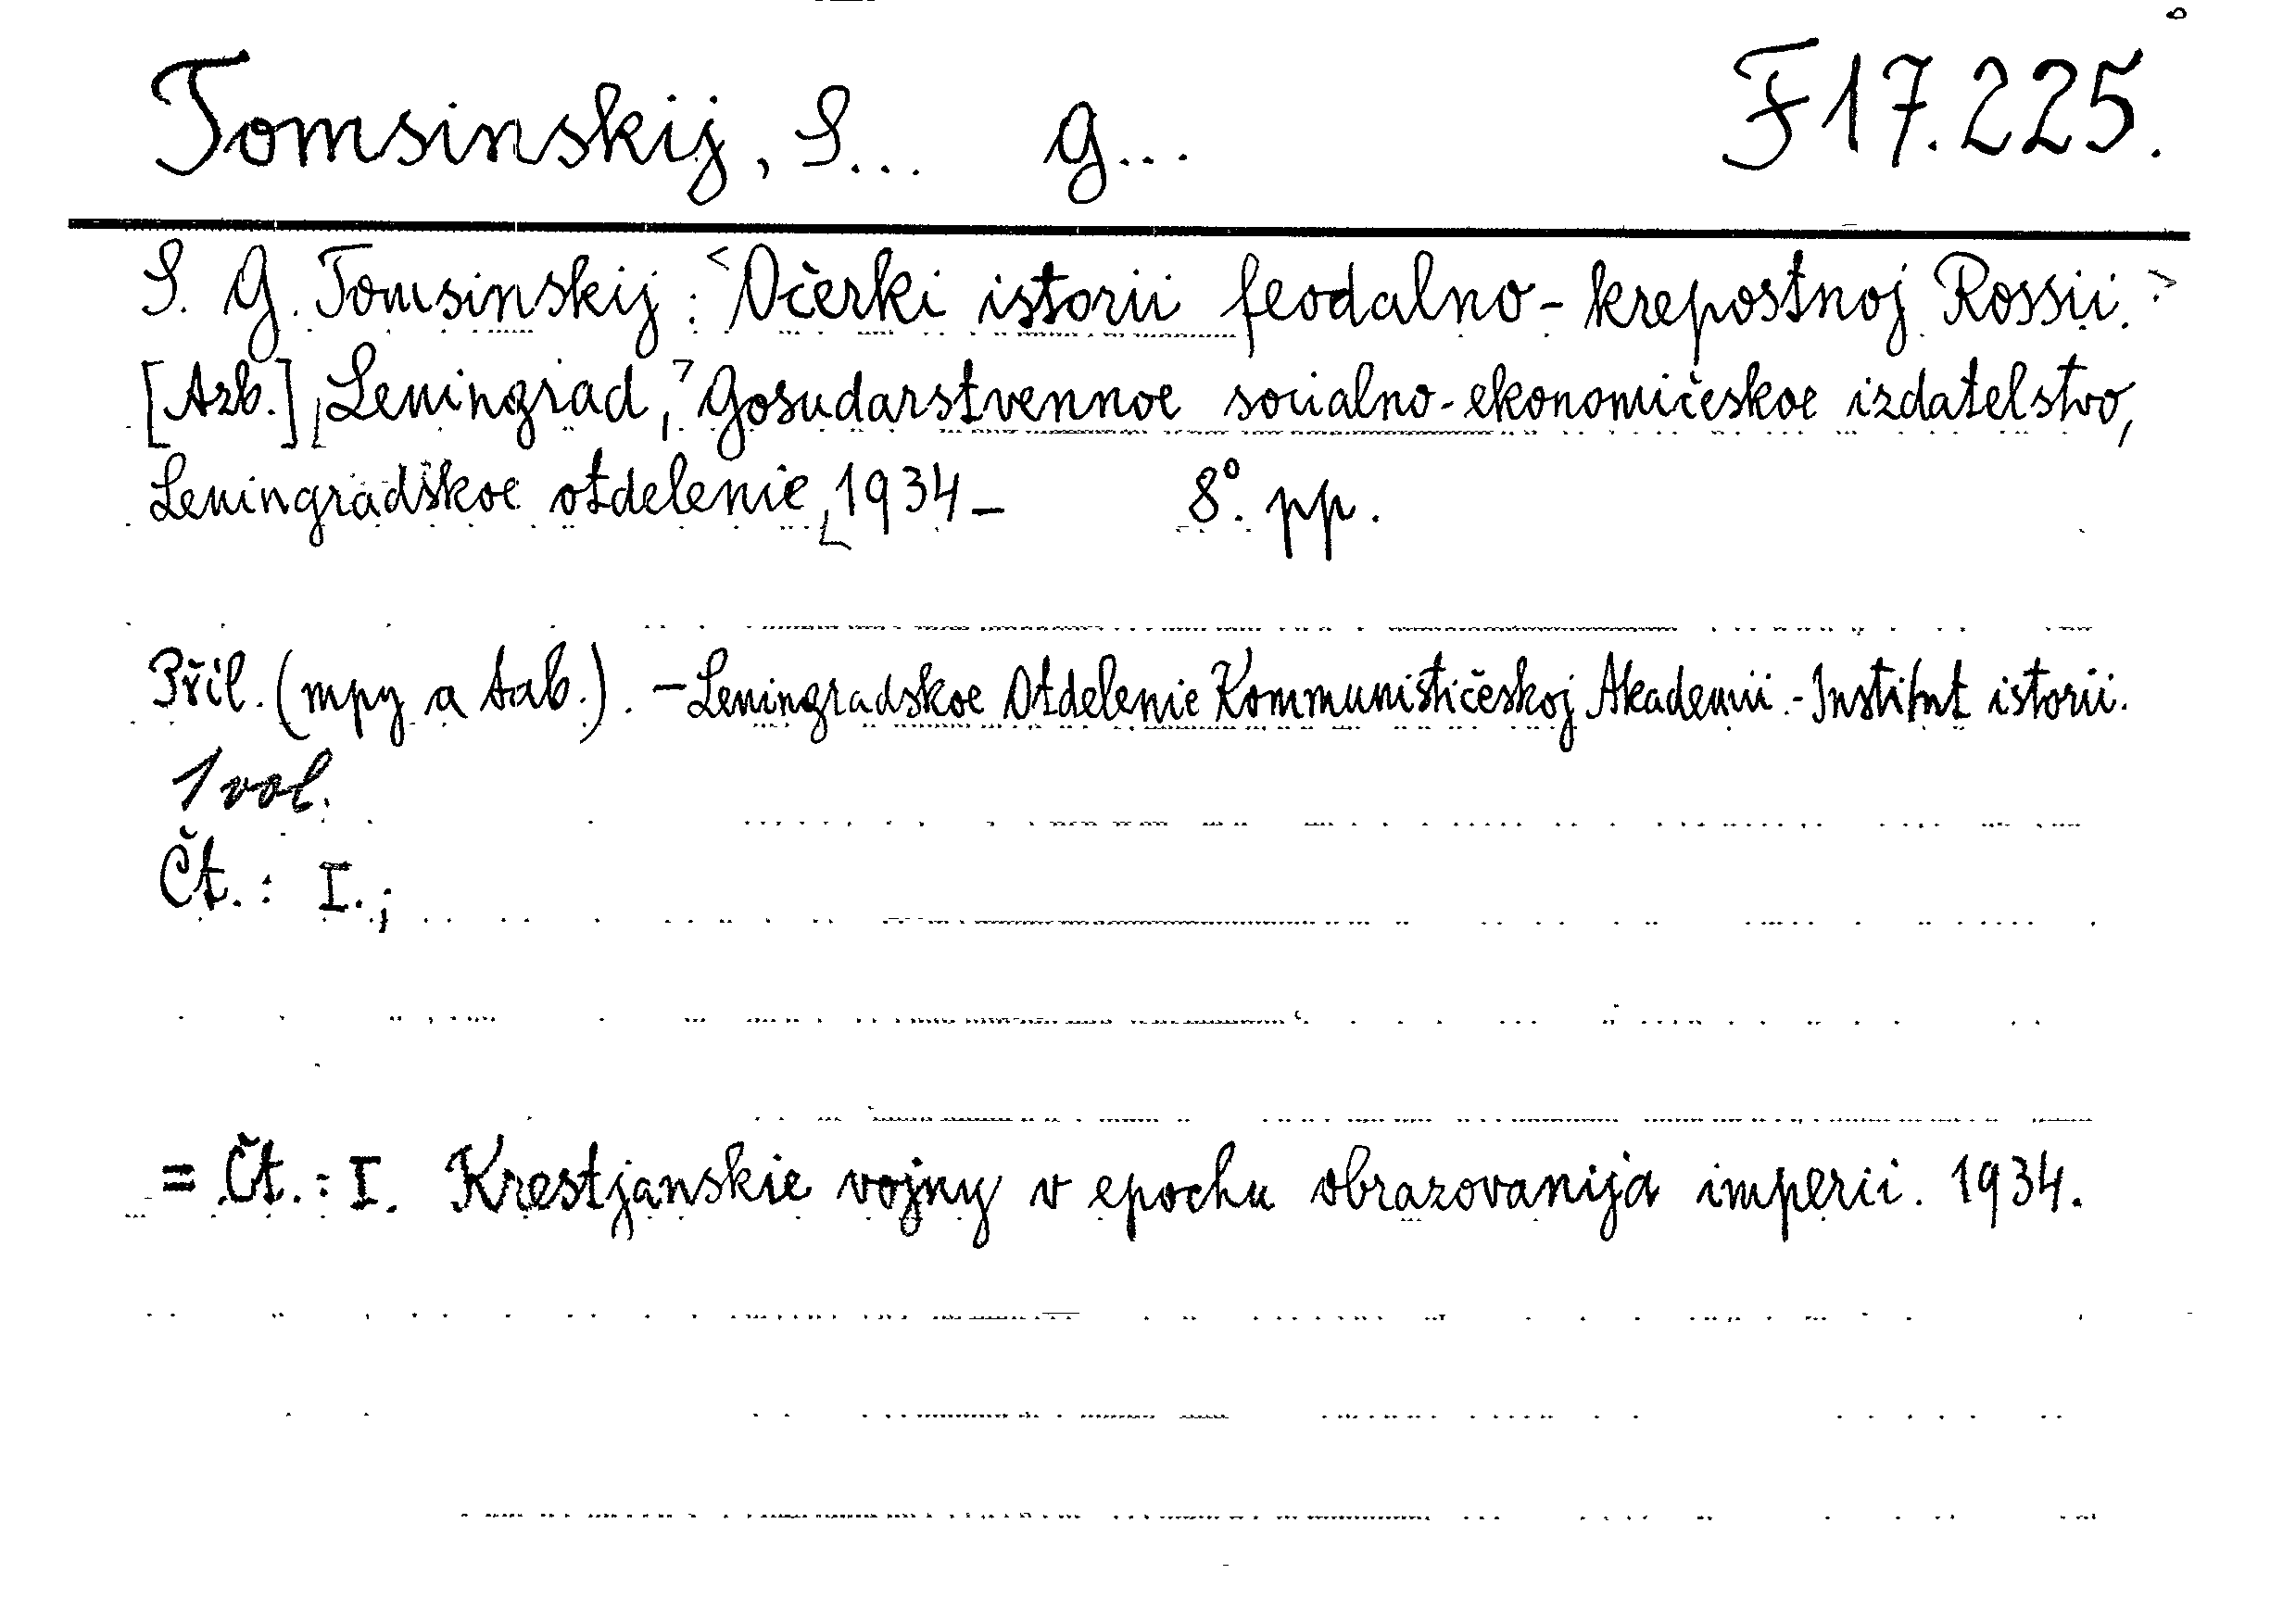 Tomsinskij, S... G... F 17.225.
S. G. Tomsinskij: <Očerki istorii feodalno-krepostnoj Rossii.>
[Azb.] Leningrad, Gosudarstvennoe socialno-ekonomičeskoe izdatelstvo,
Leningradskoe otdelenie, 1934- 8°. pp.
Příl. (mpy a tab.). -Leningradskoe Otdelenie Kommunističeskoj Akademii.-Institut istorii.
1 vol.
Čt.: I.;
= Čt.: I. Krestjanskie vojny v epochu obrazovanija imperii. 1934.